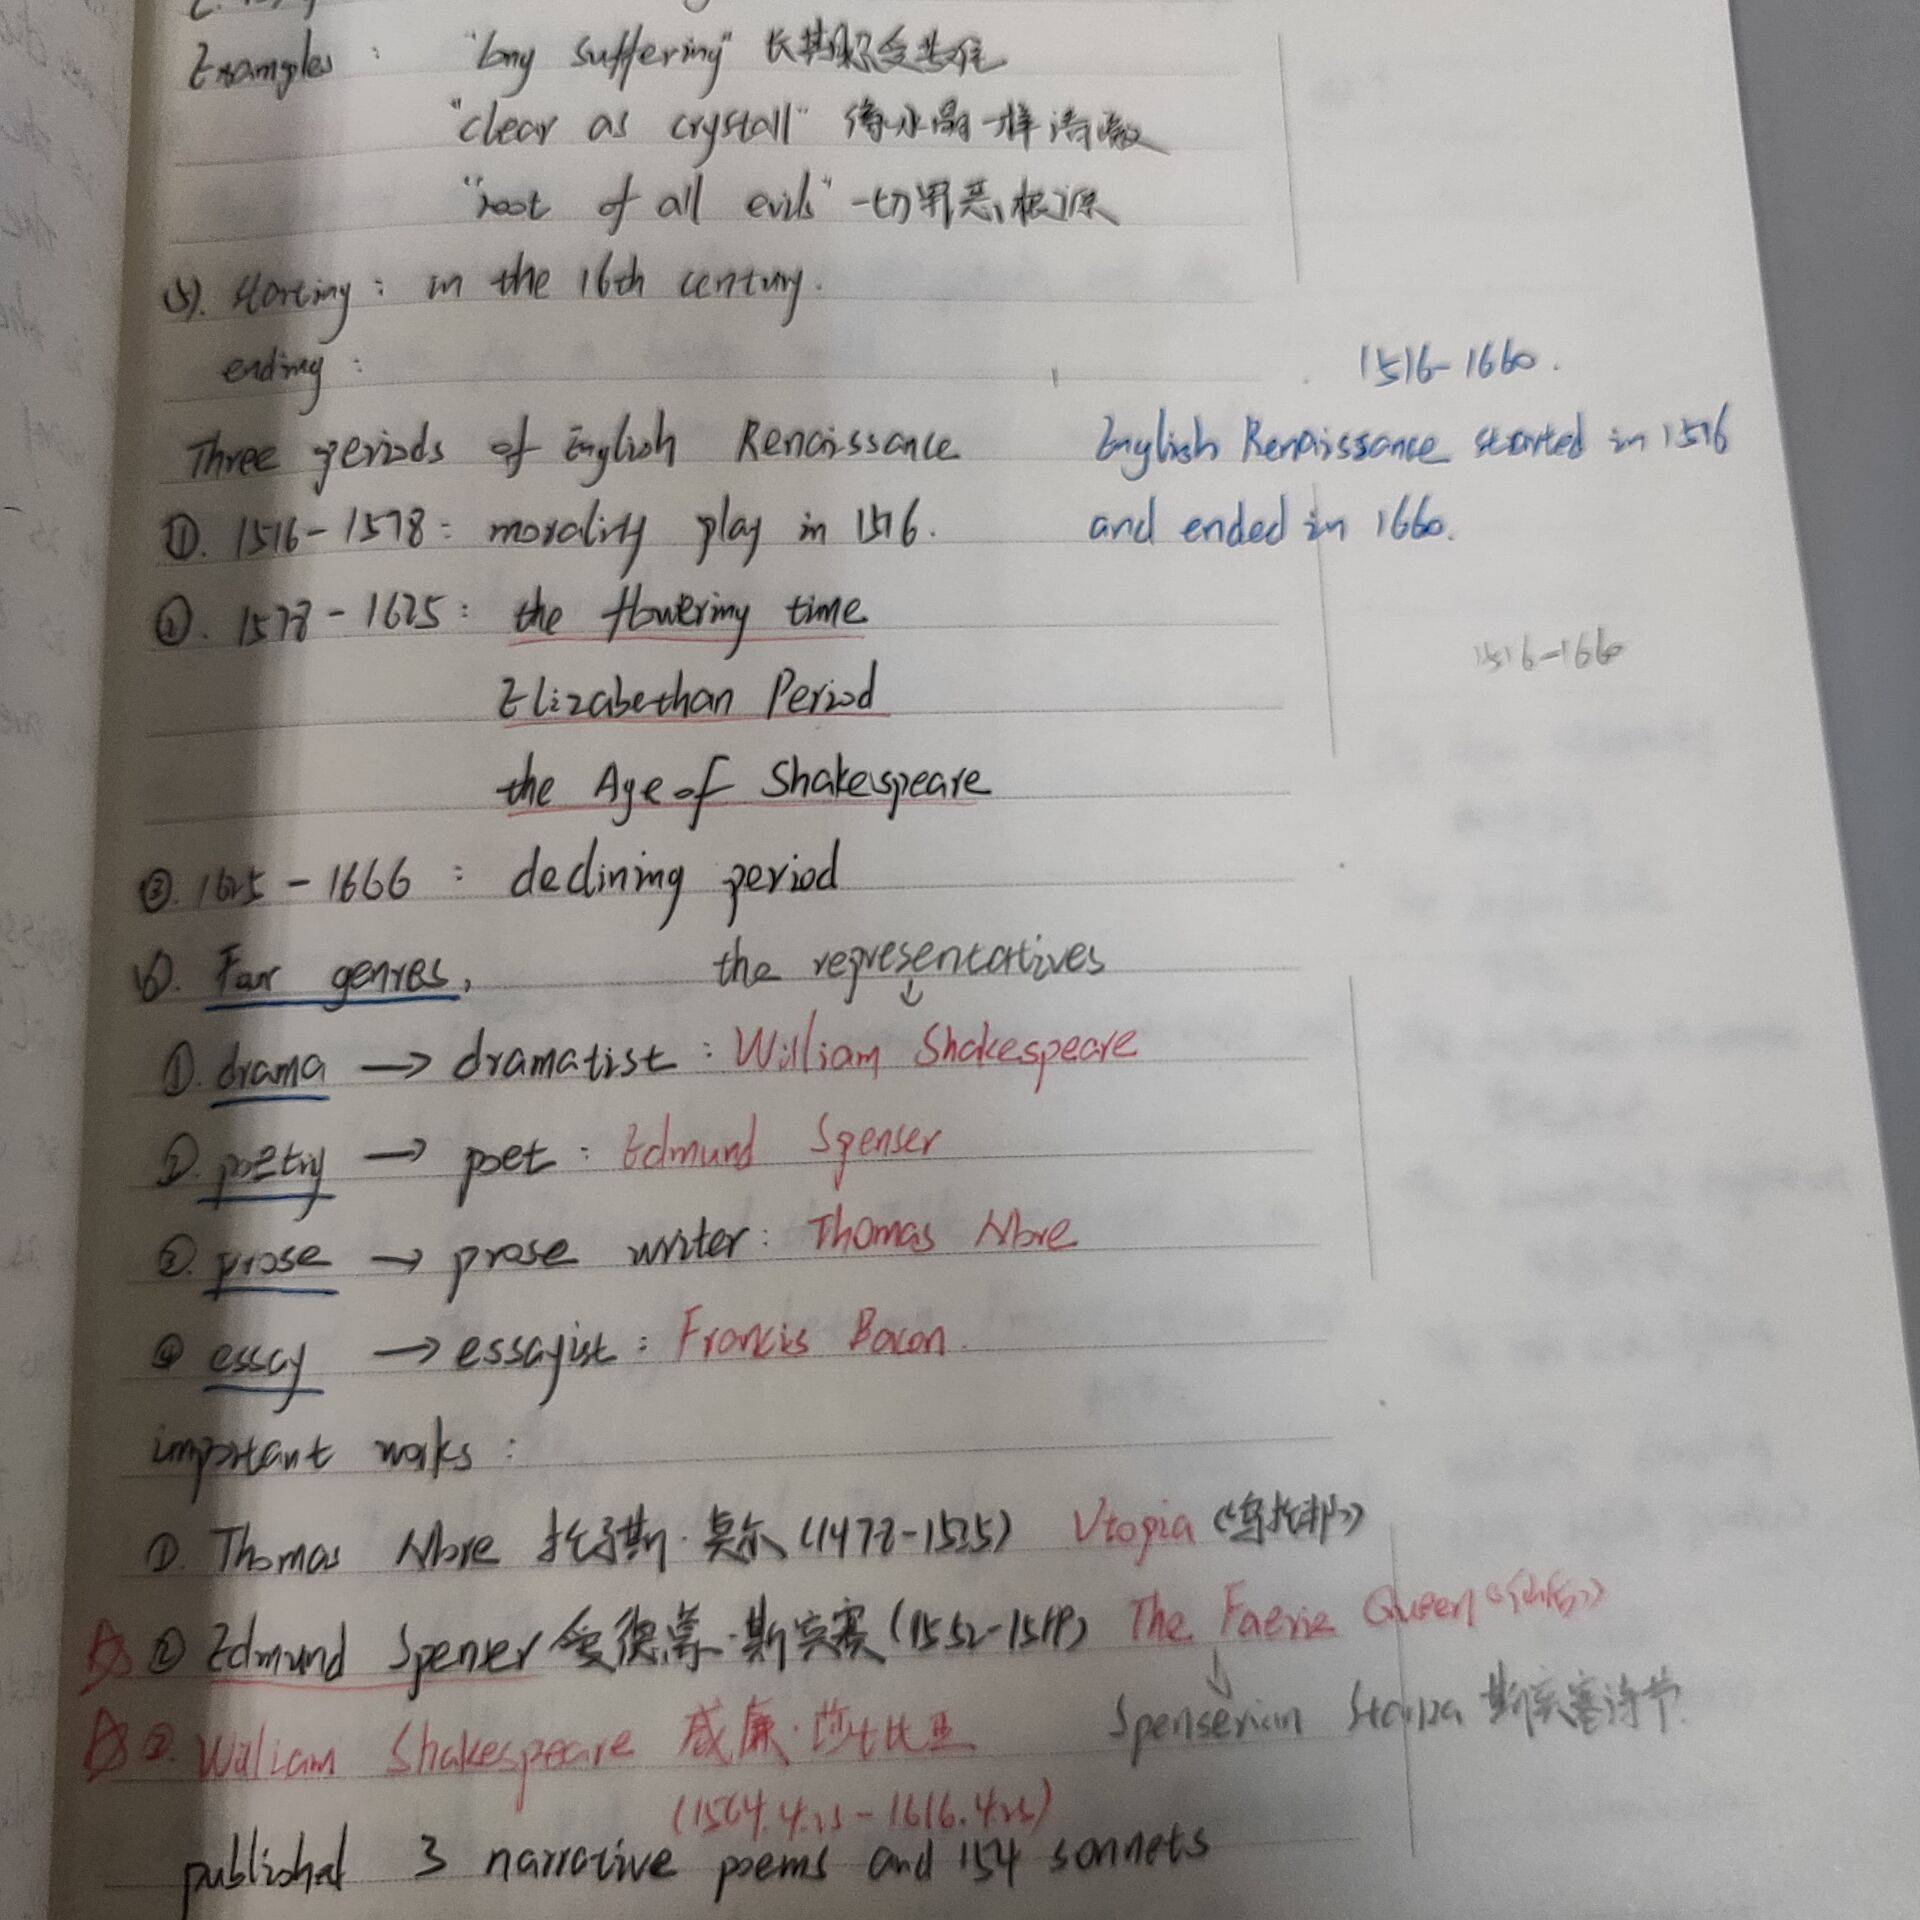 Examples : "long suffering" 长期忍受苦难
"clear as crystall" 像水晶一样清澈
"root of all evils" 一切罪恶根源
(5). starting : in the 16th century.
ending :
1516-1660.
Three periods of English Renaissance
English Renaissance started in 1516
and ended in 1660.
①. 1516-1578 : morality play in 1516.
②. 1578-1625 : the flowering time
1516-1660
Elizabethan Period
the Age of Shakespeare
③. 1625-1666 : declining period
6). Four genres, the representatives
↓
①. drama → dramatist : William Shakespeare
②. poetry → poet : Edmund Spenser
③. prose → prose writer : Thomas More
④ essay → essayist : Francis Bacon.
important works :
①. Thomas More 托马斯·莫尔 (1478-1535) Utopia 《乌托邦》
② Edmund Spenser 爱德蒙·斯宾塞 (1552-1599) The Faerie Queen
↓
Spenserian Stanza 斯宾塞诗节
③. William Shakespeare 威廉·莎士比亚
(1564.4.23-1616.4.23)
published 3 narrative poems and 154 sonnets